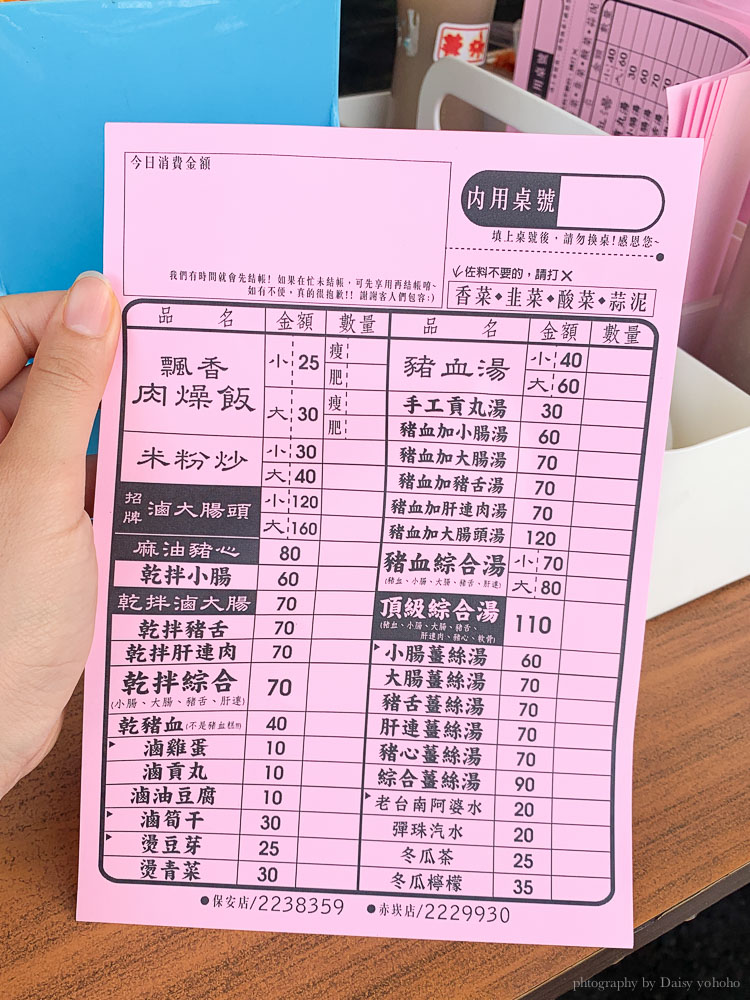 今日消費金額
我們有時間就會先結帳! 如果在忙未結帳,可先享用再結帳唷~
如有不便,真的很抱歉!! 謝謝客人們包容:)
內用桌號
填上桌號後,請勿換桌!感恩您~
佐料不要的,請打✕
香菜◆韭菜◆酸菜◆蒜泥
品 名 金額 數量
飄香肉燥飯 小 25 瘦 肥
大 30 瘦 肥
米粉炒 小 30
大 40
招牌 滷大腸頭 小 120
大 160
麻油豬心 80
乾拌小腸 60
乾拌滷大腸 70
乾拌豬舌 70
乾拌肝連肉 70
乾拌綜合 70
(小腸、大腸、豬舌、肝連)
乾豬血(不是豬血糕!!) 40
滷雞蛋 10
滷貢丸 10
滷油豆腐 10
滷筍干 30
燙豆芽 25
燙青菜 30
品 名 金額 數量
豬血湯 小 40
大 60
手工貢丸湯 30
豬血加小腸湯 60
豬血加大腸湯 70
豬血加豬舌湯 70
豬血加肝連肉湯 70
豬血加大腸頭湯 120
豬血綜合湯 小 70
(豬血、小腸、大腸、豬舌、肝連) 大 80
頂級綜合湯 110
(豬血、小腸、大腸、豬舌、
肝連肉、豬心、軟骨)
小腸薑絲湯 60
大腸薑絲湯 70
豬舌薑絲湯 70
肝連薑絲湯 70
豬心薑絲湯 70
綜合薑絲湯 90
老台南阿婆水 20
彈珠汽水 20
冬瓜茶 25
冬瓜檸檬 35
●保安店/2238359 ●赤崁店/2229930
phtography by Daisy yohoho